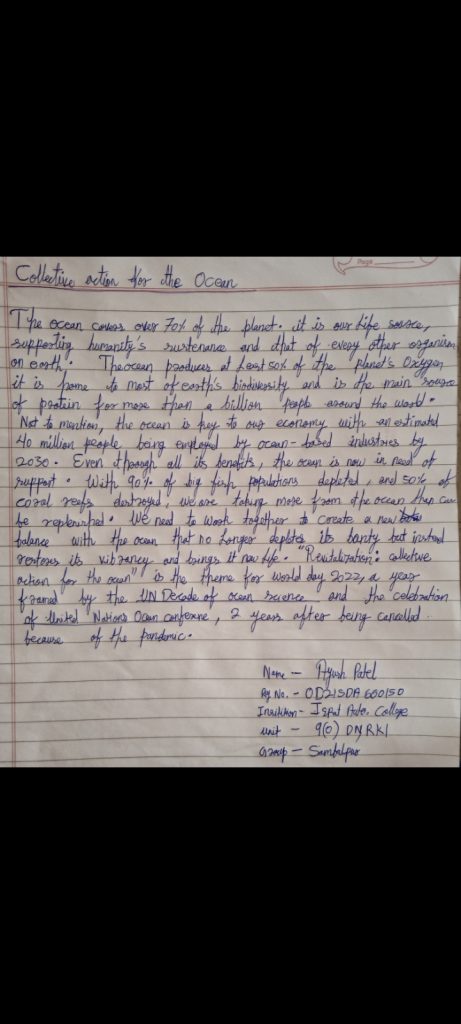 Page
Collective action for the Ocean
The ocean covers over 70% of the planet. it is our life source,
supporting humanity's sustenance and that of every other organism
on earth. The ocean produces at least 50% of the planet's Oxygen
it is home to most of earth's biodiversity and is the main source
of protein for more than a billion people around the world.
Not to mention, the ocean is key to our economy with an estimated
40 million people being employed by ocean-based industries by
2030. Even though all its benefits, the ocean is now in need of
support. With 90% of big fish populations depleted, and 50% of
coral reefs destroyed, we are taking more from the ocean than can
be replenished. We need to work together to create a new
balance with the ocean that no longer depletes its bounty but instead
restores its vibrancy and brings it new life. "Revitalization: collective
action for the ocean" is the theme for world day 2022, a year
framed by the UN Decade of ocean science and the celebration
of United Nations Ocean conference, 2 years after being cancelled
because of the pandemic.
Name - Ayush Patel
Reg No. - OD21SDA600150
Institution - Ispat Auto. College
Unit - 9(O) DN RKL
Group - Sambalpur